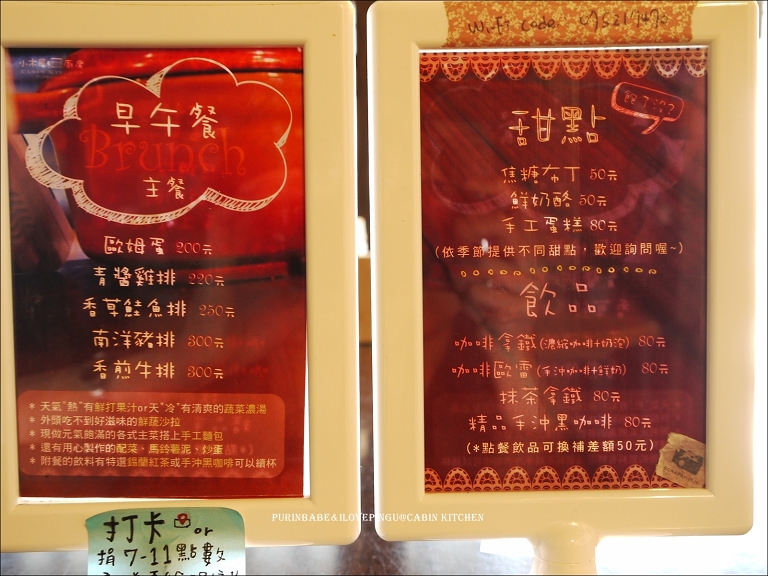 早午餐
Brunch
主餐
歐姆蛋 200元
青醬雞排 220元
香草鮭魚排 250元
南洋豬排 300元
香煎牛排 300元
* 天氣"熱"有鮮打果汁or天"冷"有清爽的蔬菜濃湯
* 外頭吃不到好滋味的鮮蔬沙拉
* 現做元氣飽滿的各式主菜搭上手工麵包
* 還有用心製作的配菜、馬鈴薯泥、炒蛋
* 附餐的飲料有特選錫蘭紅茶或手沖黑咖啡可以續杯
打卡 or
捐7-11點數
Wi-Fi Code
甜點
焦糖布丁 50元
鮮奶酪 50元
手工蛋糕 80元
(依季節提供不同甜點，歡迎詢問喔~)
飲品
咖啡拿鐵(濃縮咖啡+奶泡) 80元
咖啡歐雷(手沖咖啡+鮮奶) 80元
抹茶拿鐵 80元
精品手沖黑咖啡 80元
(*點餐飲品可換補差額50元)
PURINBABE&ILOVEPINGU@CABIN KITCHEN